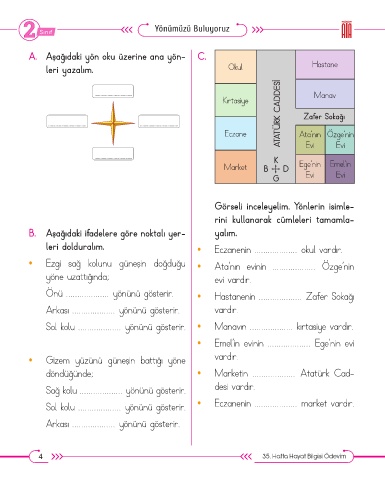 2. Sınıf
Yönümüzü Buluyoruz
ATA
A. Aşağıdaki yön oku üzerine ana yön-
leri yazalım.
B. Aşağıdaki ifadelere göre noktalı yer-
leri dolduralım.
• Ezgi sağ kolunu güneşin doğduğu
yöne uzattığında;
Önü .................. yönünü gösterir.
Arkası .................. yönünü gösterir.
Sol kolu .................. yönünü gösterir.
• Gizem yüzünü güneşin battığı yöne
döndüğünde;
Sağ kolu .................. yönünü gösterir.
Sol kolu .................. yönünü gösterir.
Arkası .................. yönünü gösterir.
C.
Okul
Kırtasiye
Eczane
Market
ATATÜRK CADDESİ
K
B D
G
Hastane
Manav
Zafer Sokağı
Ata'nın Evi
Özge'nin Evi
Ege'nin Evi
Emel'in Evi
Görseli inceleyelim. Yönlerin isimle-
rini kullanarak cümleleri tamamla-
yalım.
• Eczanenin .................. okul vardır.
• Ata'nın evinin .................. Özge'nin
evi vardır.
• Hastanenin .................. Zafer Sokağı
vardır.
• Manavın .................. kırtasiye vardır.
• Emel'in evinin .................. Ege'nin evi
vardır.
• Marketin .................. Atatürk Cad-
desi vardır.
• Eczanenin .................. market vardır.
4
35. Hafta Hayat Bilgisi Ödevim